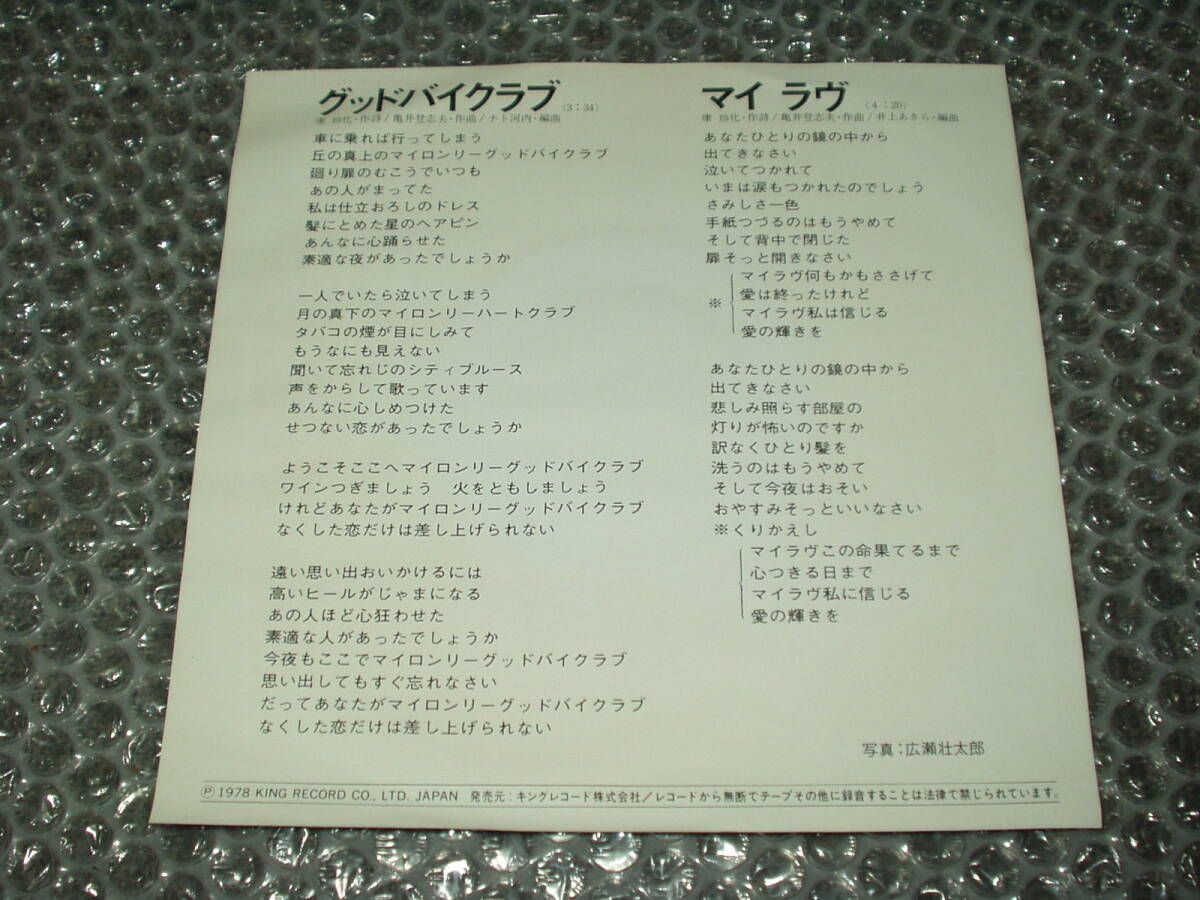 グッドバイクラブ (3:34)
康 珍化・作詩/亀井登志夫・作曲/チト河内・編曲
車に乗れば行ってしまう
丘の真上のマイロンリーグッドバイクラブ
廻り扉のむこうでいつも
あの人がまってた
私は仕立おろしのドレス
髪にとめた星のヘアピン
あんなに心踊らせた
素適な夜があったでしょうか
一人でいたら泣いてしまう
月の真下のマイロンリーハートクラブ
タバコの煙が目にしみて
もうなにも見えない
聞いて忘れじのシティブルース
声をからして歌っています
あんなに心しめつけた
せつない恋があったでしょうか
ようこそここへマイロンリーグッドバイクラブ
ワインつぎましょう 火をともしましょう
けれどあなたがマイロンリーグッドバイクラブ
なくした恋だけは差し上げられない
遠い思い出おいかけるには
高いヒールがじゃまになる
あの人ほど心狂わせた
素適な人があったでしょうか
今夜もここでマイロンリーグッドバイクラブ
思い出してもすぐ忘れなさい
だってあなたがマイロンリーグッドバイクラブ
なくした恋だけは差し上げられない
マイ ラヴ (4:20)
康 珍化・作詩/亀井登志夫・作曲/井上あきら・編曲
あなたひとりの鏡の中から
出てきなさい
泣いてつかれて
いまは涙もつかれたのでしょう
さみしさ一色
手紙つづるのはもうやめて
そして背中で閉じた
扉そっと開きなさい
※ マイラヴ何もかもささげて
愛は終ったけれど
マイラヴ私は信じる
愛の輝きを
あなたひとりの鏡の中から
出てきなさい
悲しみ照らす部屋の
灯りが怖いのですか
訳なくひとり髪を
洗うのはもうやめて
そして今夜はおそい
おやすみそっといいなさい
※くりかえし
マイラヴこの命果てるまで
心つきる日まで
マイラヴ私に信じる
愛の輝きを
写真:広瀬壮太郎
Ⓟ 1978 KING RECORD CO., LTD. JAPAN 発売元:キングレコード株式会社/レコードから無断でテープその他に録音することは法律で禁じられています。